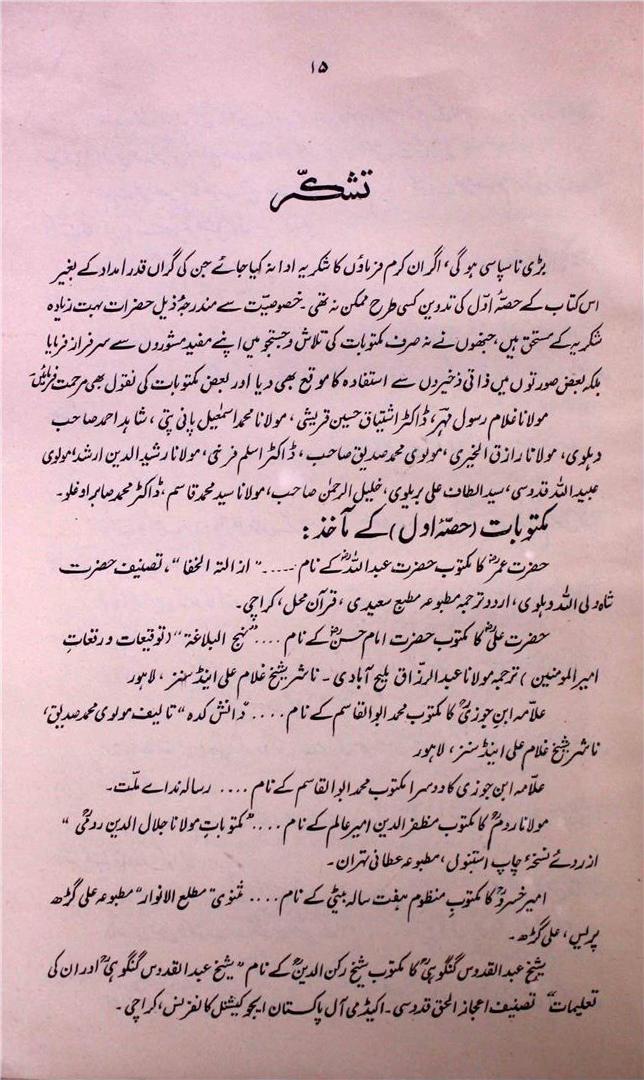 ۱۵
تشکّر
بڑی ناسپاسی ہوگی، اگر ان کرم فرماؤں کا شکریہ ادا نہ کیا جائے جن کی گراں قدر امداد کے بغیر
اس کتاب کے حصۂ اوّل کی تدوین کسی طرح ممکن نہ تھی۔ خصوصیّت سے مندرجۂ ذیل حضرات بہت زیادہ
شکریہ کے مستحق ہیں، جنھوں نے نہ صرف مکتوبات کی تلاش و جستجو میں اپنے مفید مشوروں سے سرفراز فرمایا
بلکہ بعض صورتوں میں ذاتی ذخیروں سے استفادہ کا موقع بھی دیا اور بعض مکتوبات کی نقول بھی مرحمت فرمائیں۔
مولانا غلام رسول مہرؔ، ڈاکٹر اشتیاق حسین قریشی، مولانا محمد اسمٰعیل پانی پتی، شاہد احمد صاحب
دہلوی، مولانا رازق الخیری، مولوی محمد صدیق صاحب، ڈاکٹر اسلم فرخی، مولانا رشید الدین ارشد، مولوی
عبید اللہ قدوسی، سید الطاف علی بریلوی، خلیل الرحمٰن صاحب، مولانا سید محمد قاسم، ڈاکٹر محمد صابر اوغلو۔
مکتوبات (حصۂ اول) کے مآخذ:
حضرت عمرؓ کا مکتوب حضرت عبداللہؓ کے نام ..... "ازالتہ الخفا"، تصنیف حضرت
شاہ ولی اللہ دہلوی، اردو ترجمہ مطبوعہ مطبع سعیدی، قرآن محل، کراچی۔
حضرت علیؓ کا مکتوب حضرت امام حسنؓ کے نام .... "نہج البلاغۃ" (توقیعات و رقعات
امیر المومنین) ترجمہ مولانا عبدالرزّاق ملیح آبادی۔ ناشر شیخ غلام علی اینڈ سنز، لاہور
علّامہ ابن جوزیؒ کا مکتوب محمد ابوالقاسم کے نام .... "دانش کدہ" تالیف مولوی محمد صدیق،
ناشر شیخ غلام علی اینڈ سنز، لاہور
علّامہ ابن جوزی کا دوسرا مکتوب محمد ابوالقاسم کے نام .... رسالہ ندائے ملّت۔
مولانا رومؒ کا مکتوب مظفر الدین امیر عالم کے نام .... "مکتوبات مولانا جلال الدین رومیؒ"
از روئے نسخۂ چاپ استنبول، مطبوعہ عطائی تہران۔
امیر خسروؒ کا مکتوبِ منظوم ہفت سالہ بیٹی کے نام .... مثنوی "مطلع الانوار" مطبوعہ علی گڑھ
پریس، علی گڑھ۔
شیخ عبدالقدوس گنگوہیؒ کا مکتوب شیخ رکن الدینؒ کے نام "شیخ عبدالقدوس گنگوہیؒ اور ان کی
تعلیمات" تصنیف اعجاز الحق قدوسی۔ اکیڈمی آل پاکستان ایجوکیشنل کانفرنس، کراچی۔